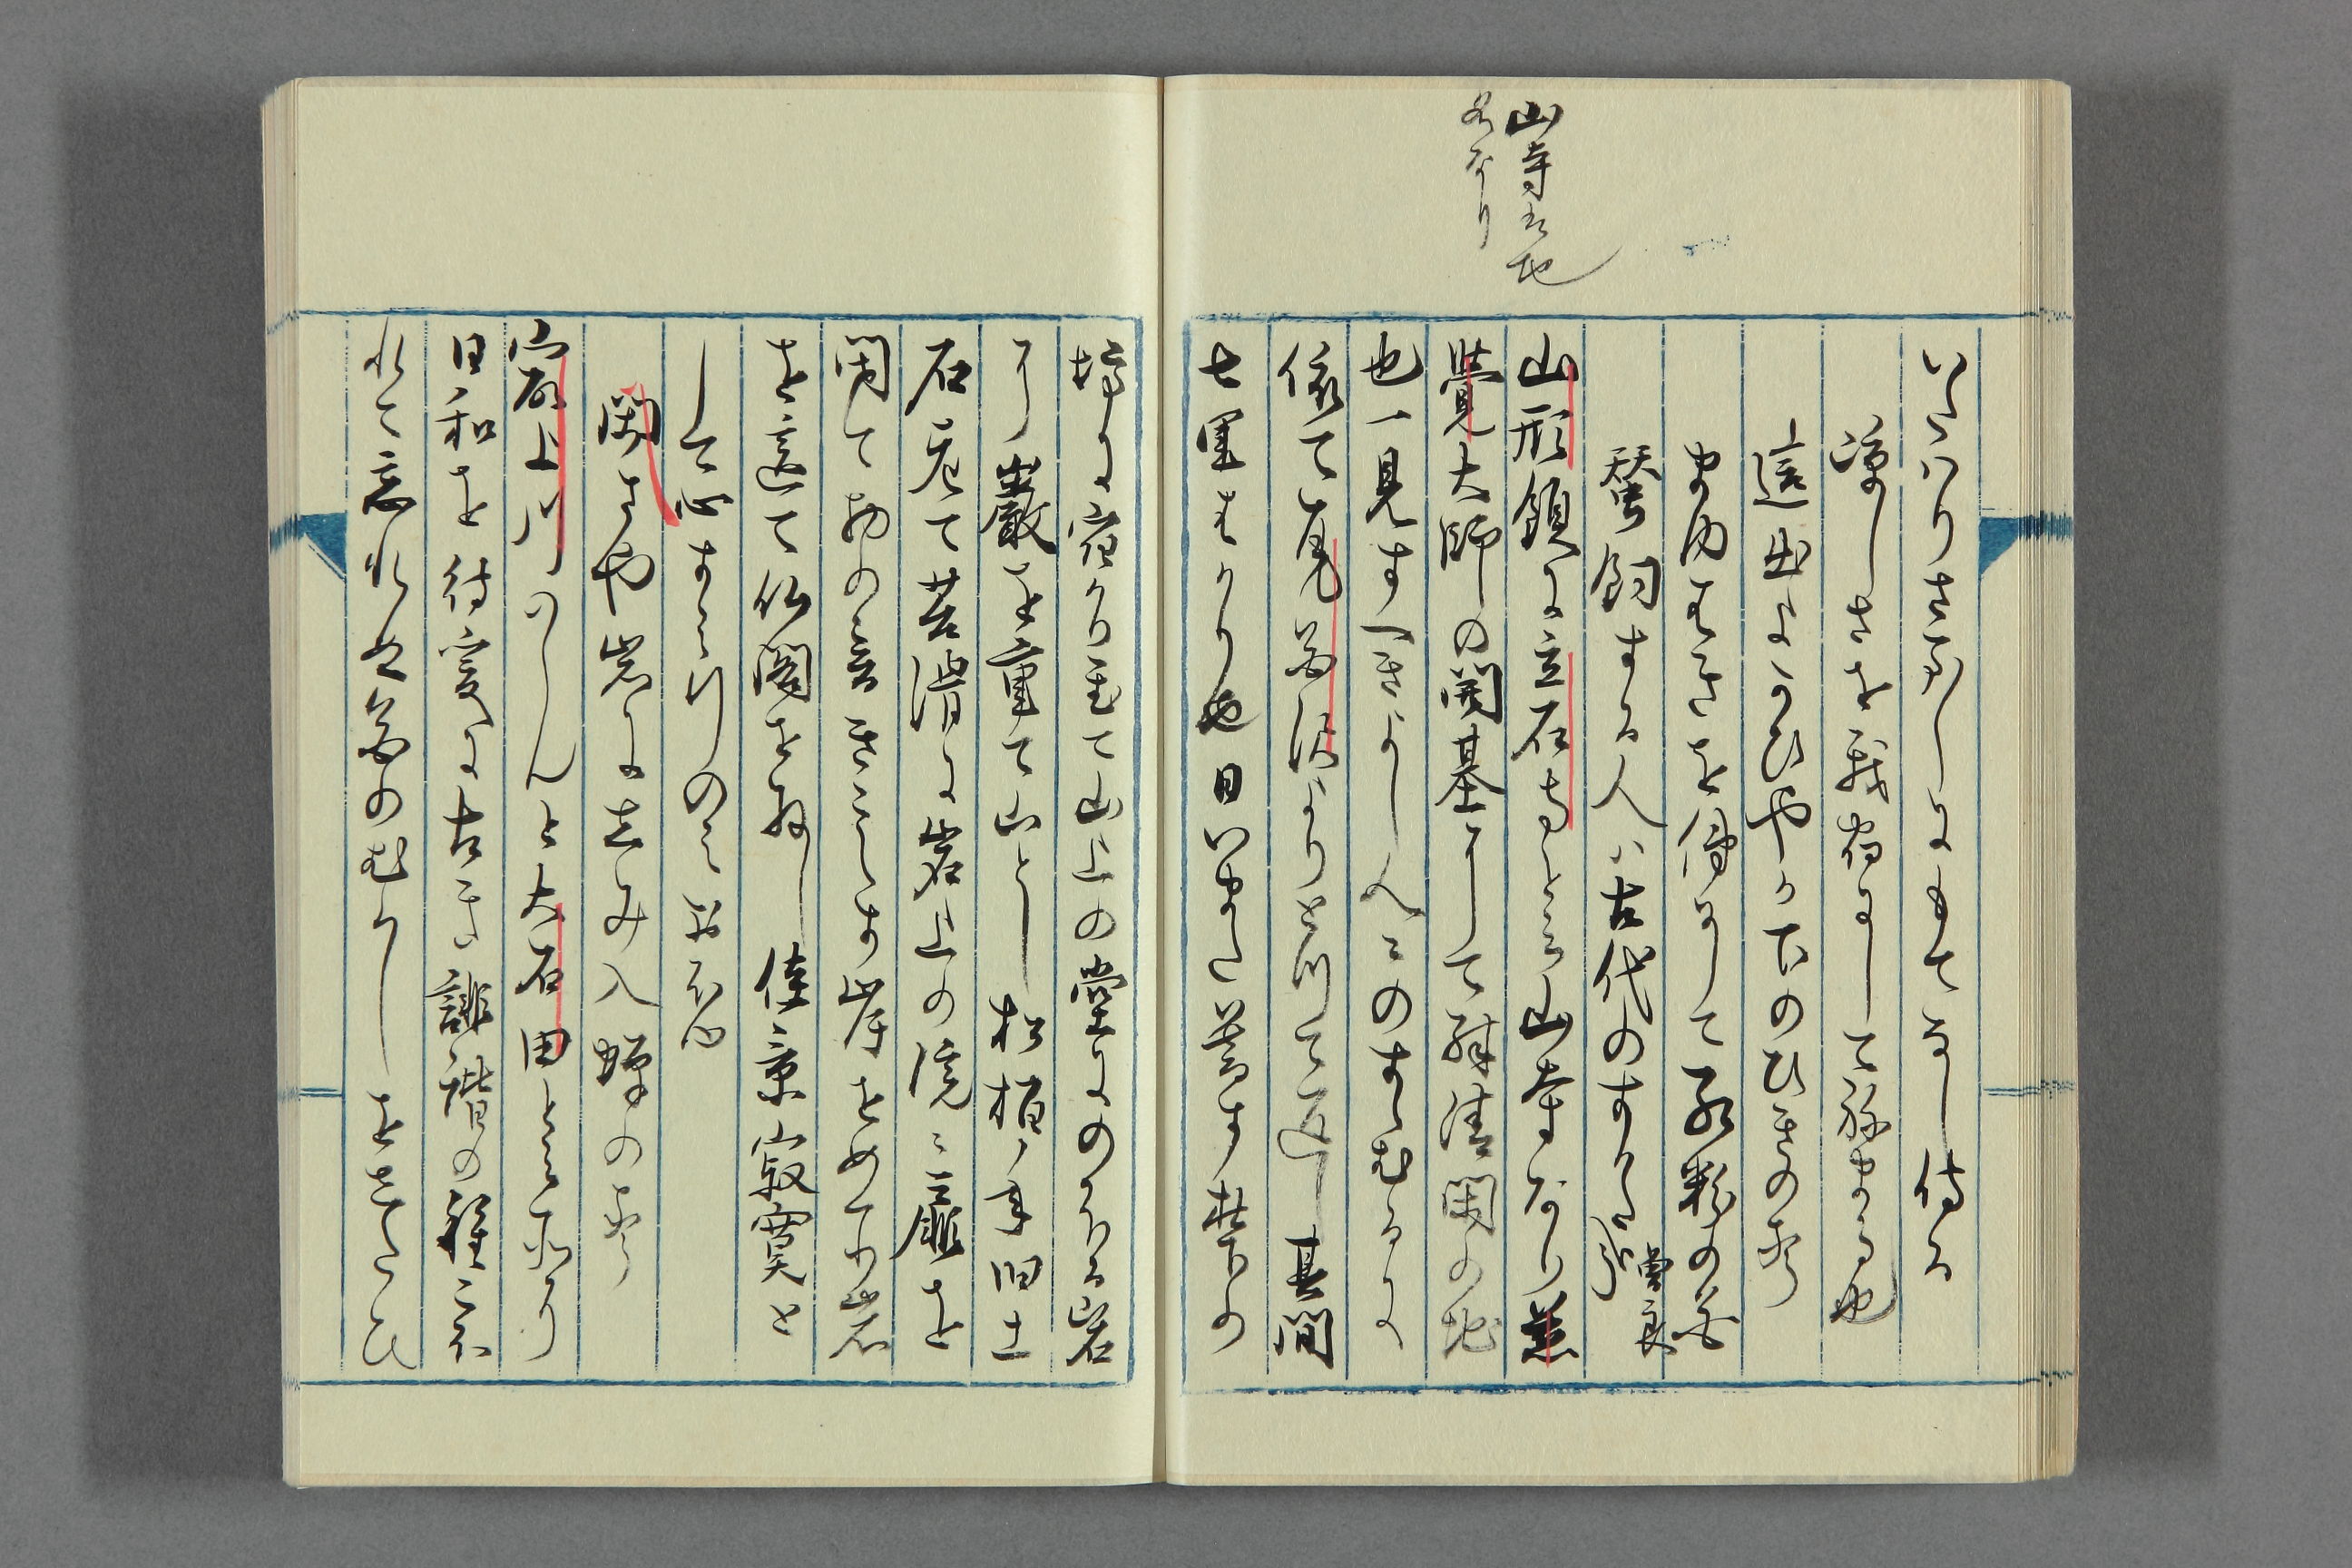 山寺は地
名なり
いたハりさま〳〵にもてなし侍る
涼しさを我宿にしてねまる也
這出よかひやか下のひきの声
まゆはきを俤にして紅粉の花
蚕飼する人ハ古代のすかた哉 曽良
山形領に立石寺と云山寺あり慈
覺大師の開基にして殊清閑の地
也一見すへきよし人々のすゝむるに
依て尾花沢よりとつて返し其間
七里はかり也日いまた暮す梺の
坊に宿かり置て山上の堂にのほる岩
に巖を重て山とし松栢年旧土
石老て苔滑に岩上の院々扉を
閉て物の音きこえす岸をめくり岩
を這て仏閣を拝し佳景寂寞と
して心すミ行のミおほゆ
閑さや岩にしみ入蝉の声
最上川のらんと大石田と云所に
日和を待爰に古き誹諧の種こほ
れて忘れぬ花のむかしをしたひ